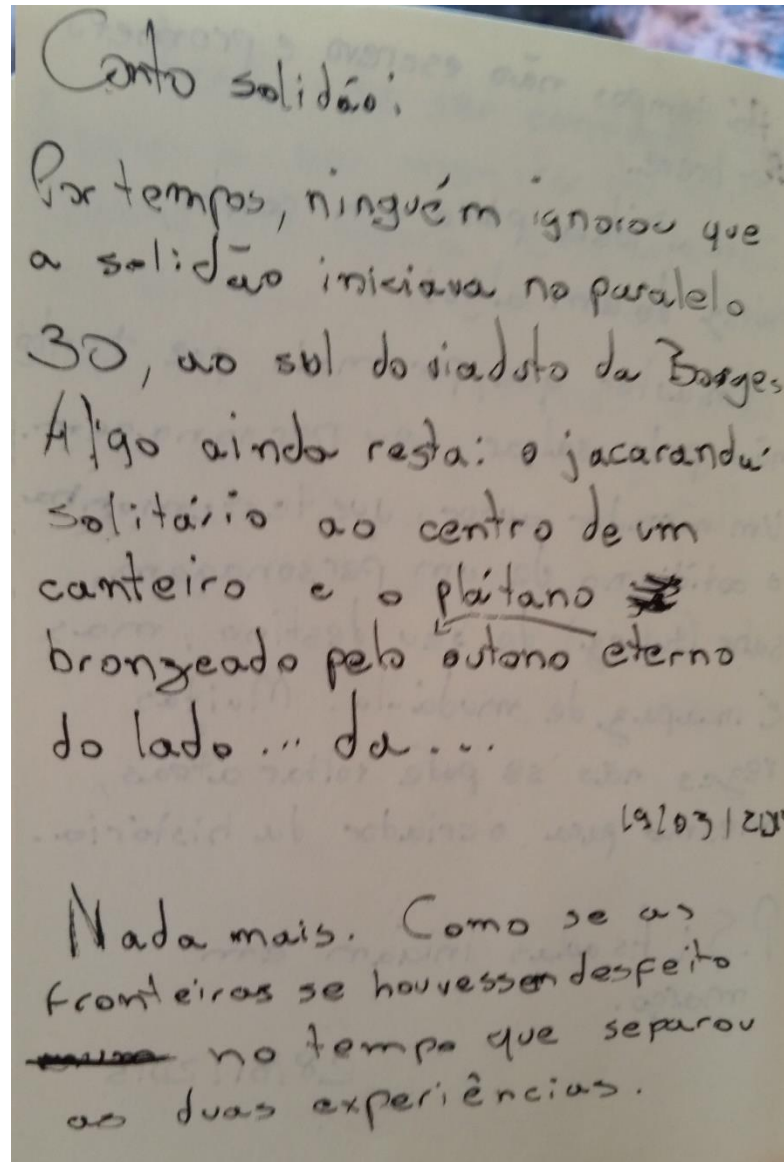 Conto solidão:
Por tempos, ninguém ignorou que
a solidão iniciava no paralelo
30, ao sul do viaduto da Borges.
Algo ainda resta: o jacarandá
solitário ao centro de um
canteiro e o plátano
bronzeado pelo outono eterno
do lado... da...
19/03/20
Nada mais. Como se as
fronteiras se houvessem desfeito
no tempo que separou
as duas experiências.